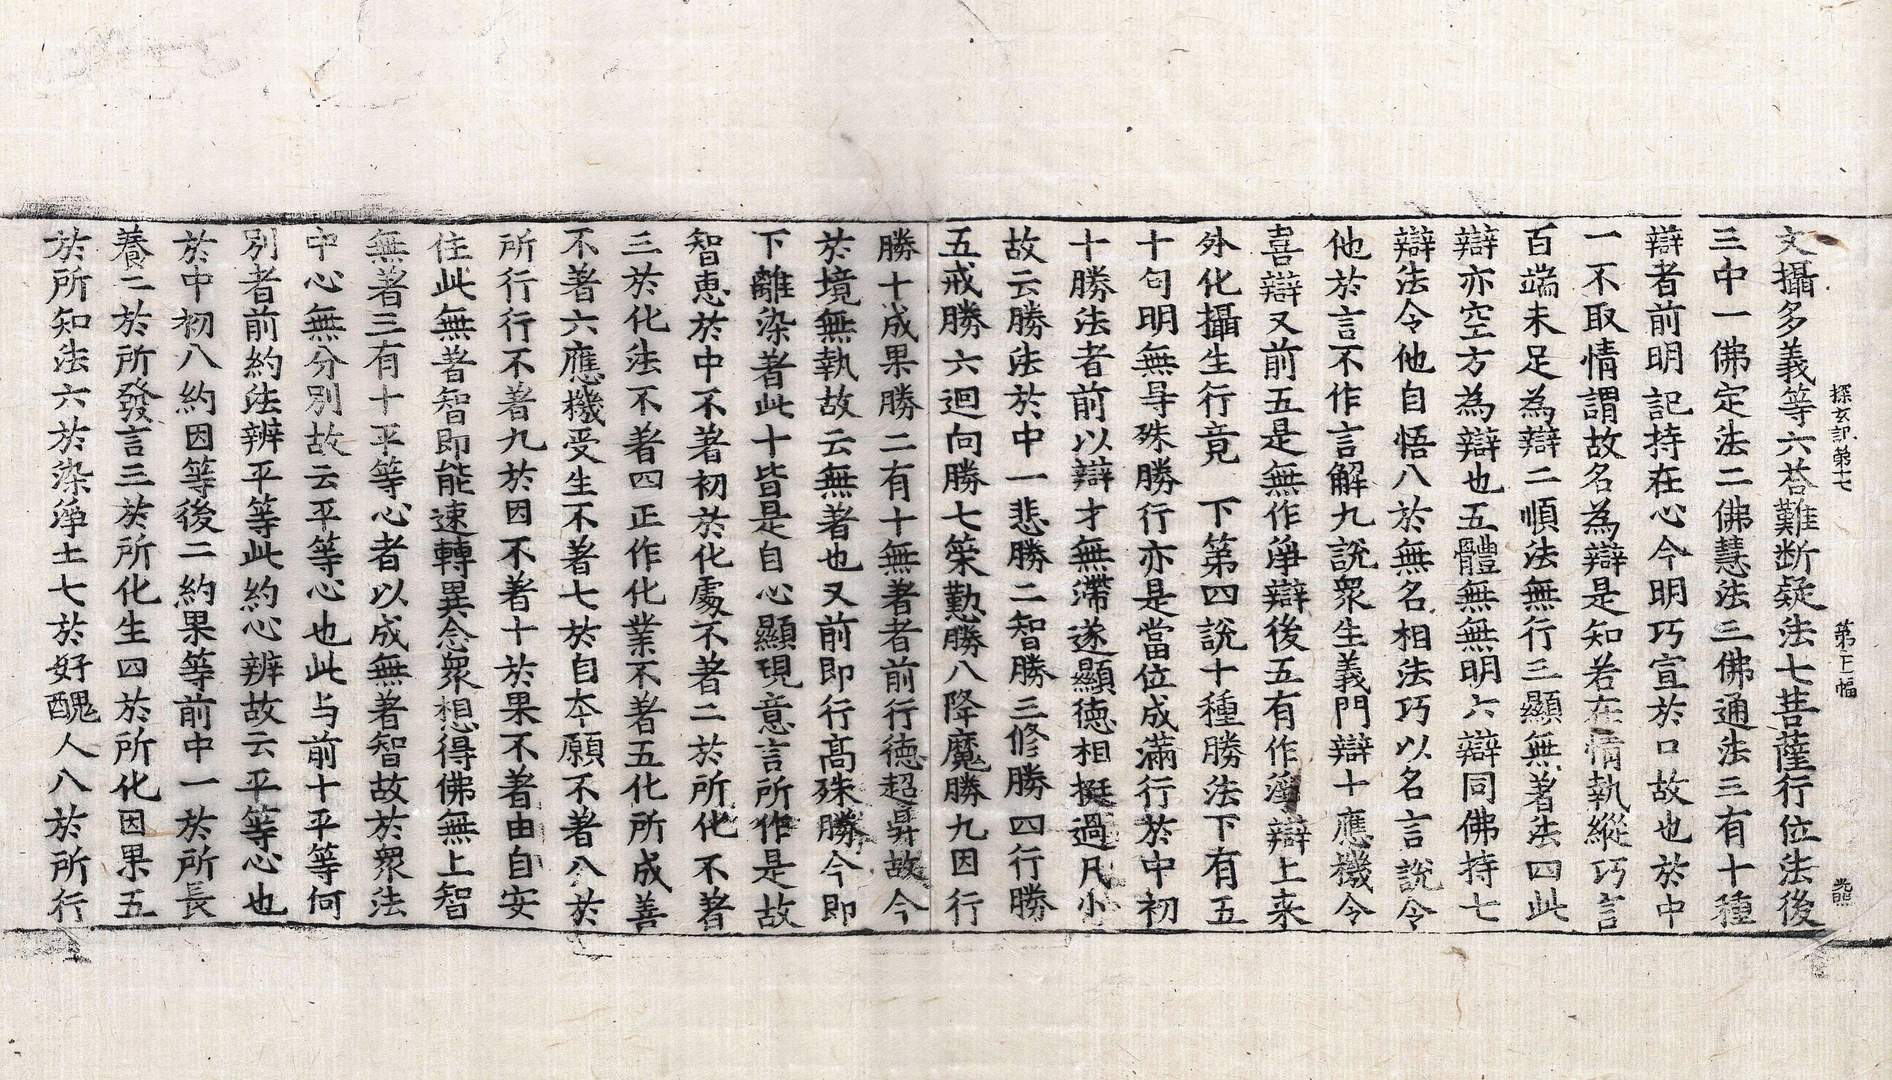 探玄記第七 第二十二幅 熊
文攝多義等六荅難断疑法七菩薩行位法後
三中一佛定法二佛慧法三佛通法三有十種
辯者前明記持在心今明巧宣於口故也於中
一不取情謂故名為辯是知若在情執縱巧言
百端未足為辯二順法無行三顯無著法四此
辯亦空方為辯也五體無無明六辯同佛持七
辯法令他自悟八於無名相法巧以名言說令
他於言不作言解九說眾生義門辯十應機令
喜辯又前五是無作淨辯後五有作淨辯上来
外化攝生行竟 下第四說十種勝法下有五
十句明無㝵殊勝行亦是當位成滿行於中初
十勝法者前以辯才無滯遂顯德相挺過凡小
故云勝法於中一悲勝二智勝三修勝四行勝
五戒勝六迴向勝七䇿懃勝八降魔勝九因行
勝十成果勝二有十無著者前行德超昇故今
於境無執故云無著也又前即行高殊勝今即
下離染著此十皆是自心顯現意言所作是故
智恵於中不著初於化處不著二於所化不著
三於化法不著四正作化業不著五化所成善
不著六應機受生不著七於自本願不著八於
所行行不著九於因不著十於果不著由自安
住此無著智即能速轉異念眾想得佛無上智
無著三有十平等心者以成無著智故於眾法
中心無分別故云平等心也此与前十平等何
別者前約法辨平等此約心辨故云平等心也
於中初八約因等後二約果等前中一於所長
養二於所發言三於所化生四於所化因果五
於所知法六於染淨土七於好醜人八於所行